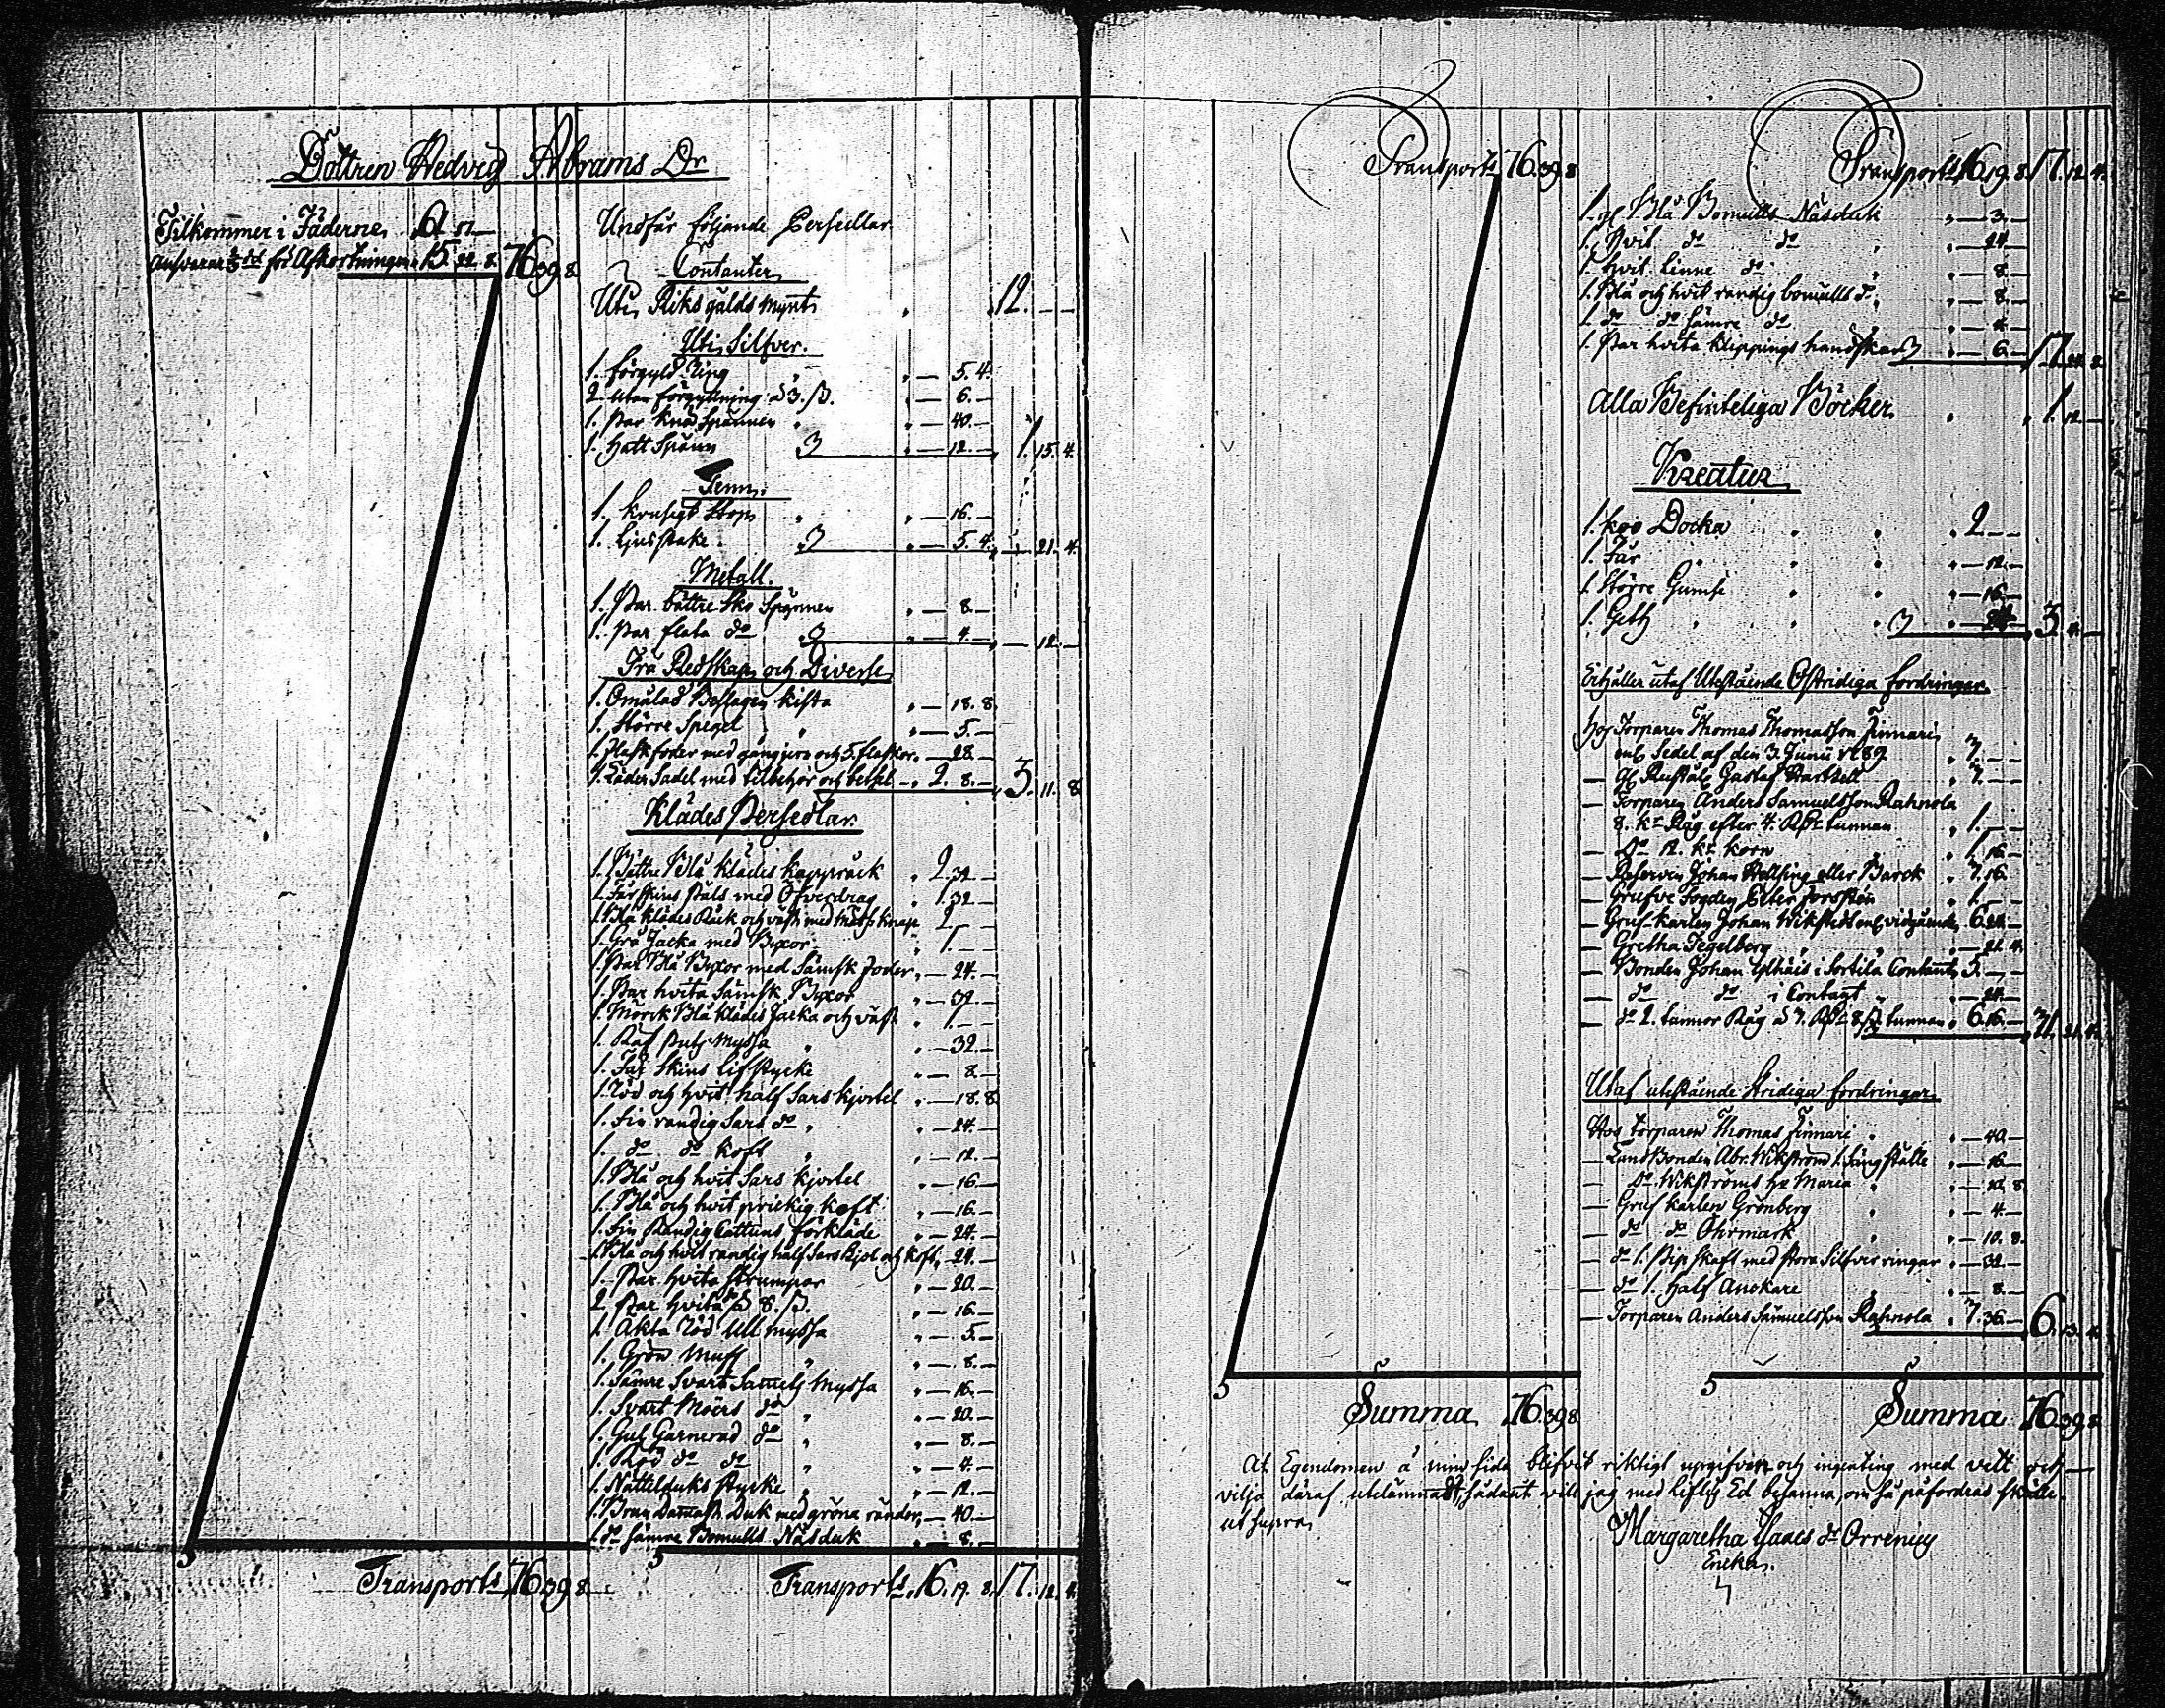 Dottren Hedvig Abrams Dr
Tilkommer i Fäderne 61 17 —
Ansvarar för Afkortningen 15. 22. 8. 76 39 8
Undfår följande Persedlar
Contanter
Uti Riksgälds mynt 12. — —
Uti Silfver.
1. förgyld Ring — 5. 4.
2 utan förgyllning à 3. ß. — 6. —
1. Par knä Spännen — 40. —
1. Hatt Spänn — 12. — 1. 15. 4.
Tenn.
1. krusigt Stop — 16. —
1. Ljusstake — 5. 4. — 21. 4.
Metall.
1. Par bättre Sko Spännen — 8. —
1. Par flata do — 4. — — 12. —
Trä Redskap och Diverse
1. Omålad Beslagen kista — 18. 8.
1. Större Spegel — 5. —
1. Flaskfoder med gångjern och 5. flaskor — 28. —
1. Läder Sadel med tilbehör och betsel 2. 8. — 3. 11. 8
Klädes Persedlar.
1. Bättre Blå klädes kappråck 2. 32 —
1. Fårskins Päls med Öfverdrag 1. 32 —
1. Blå klädes Råck och väst med 2 — —
1. Grå Jacka med Byxor 1. — —
1. Par Blå Byxor med Sämsk foder — 24. —
1. Par hvita Sämsk Byxor — 32. —
1. Mörck Blå klädes Jacka och väst 1. — —
1. Räf Myssa — 32. —
1. Får Skins Lifstycke — 8. —
1. Röd och hvit half Sars kjortel — 18. 8.
1. Fin randig Sars do — 24. —
1. do do koft — 12. —
1. Blå och hvit Sars kjortel — 16. —
1. Blå och hvit prickig koft — 16. —
1. Fin Randig Cattuns förkläde — 24. —
1. Blå och hvit randig half Sars Kjol och koft — 24. —
1. Par hvita Strumpor — 20. —
2. Par hvita à 8. ß. — 16. —
1. Äkta röd Ull myssa — 5. —
1. Grön Muff — 8. —
1. Sämre Svart Samets Myssa — 16. —
1. Svart Moirs do — 20. —
1. Gul Garnerad do — 8. —
1. Röd do do — 4. —
1. Nättelduks stycke — 12. —
1. Brun Damast Duk med gröna ränder — 40. —
1. do Sämre Bomulls Näsduk — 8. —
Transport 76 39 8
Transport 16. 19. 8. 17. 12. 4.
Transport 76. 39. 8
Transport 16. 19. 8. 17. 12. 4.
1. Blå Bomulls Näsduk — 3. —
1. Hvit do do — 24 —
1. hvit Linne do — 8. —
1. Blå och hvit randig bomulls do — 8. —
1. do do Sämre do — 4. —
1. Par hvita klippings handskar — 6. — 17
Alla Befinteliga Böcker 1. 12. —
Kreatur
1. koo Docka 2. — —
1. Får — 12. —
1. Större Gumse — 16. —
1. Get — 24 — 3. 4. —
Erhåller utaf Utestående Ostridiga fordringar.
Hos Torparen Thomas Thomasson Finnari
enl. Sedel af den 3. Junii 1789 7. — —
— Gustaf 7. — —
— Torparen Anders Samuelsson Rahnola
8. kr Råg efter 4. Rdr tunnan 1. — —
— Do 12. kr korn 1. 16. —
— Reserven Johan Hellsing eller Barck 7. 16. —
— Grufve Fogden Petter Forsstén 1. — —
— Gruf-karlen Johan Wikstedt enl. vidgående 6. 24. —
— Gretha Tegelberg — 21. 4.
— Bonden Johan i Sortila Contant 3. — —
— do do i Contant — 24. —
— do 2. tunnor Råg à 3. Rdr 8 ß tunnan 6. 16. — 31. 21. 4.
Utaf utestående Stridiga fordringar.
Hos torparen Thomas Finnari — 40 —
— Landbonden Abr. Wikström 1. Sängställe — 16 —
— Do Wikströms Maria — 10. 8
— Gruf karlen Grönberg — 4. —
— do do Öhrmark — 10. 8.
— do 1. Pip skaft med stora Silfver ringar — 32. —
— do 1. Half Anckare — 8. —
— Torparen Anders Samuelsson Rahnola 3. 36. — 6. 13. 4.
Summa 76 39 8
Summa 76 39 8
At Egendomen å min Sida blifvit riktigt upgifven och ingenting med vett och —
vilja däraf utelämnadt, sådant vill jag med liflig Ed besanna, om så påfordras skulle.
ut supra
Margaretha Isacs dr Orrenius
Enka.